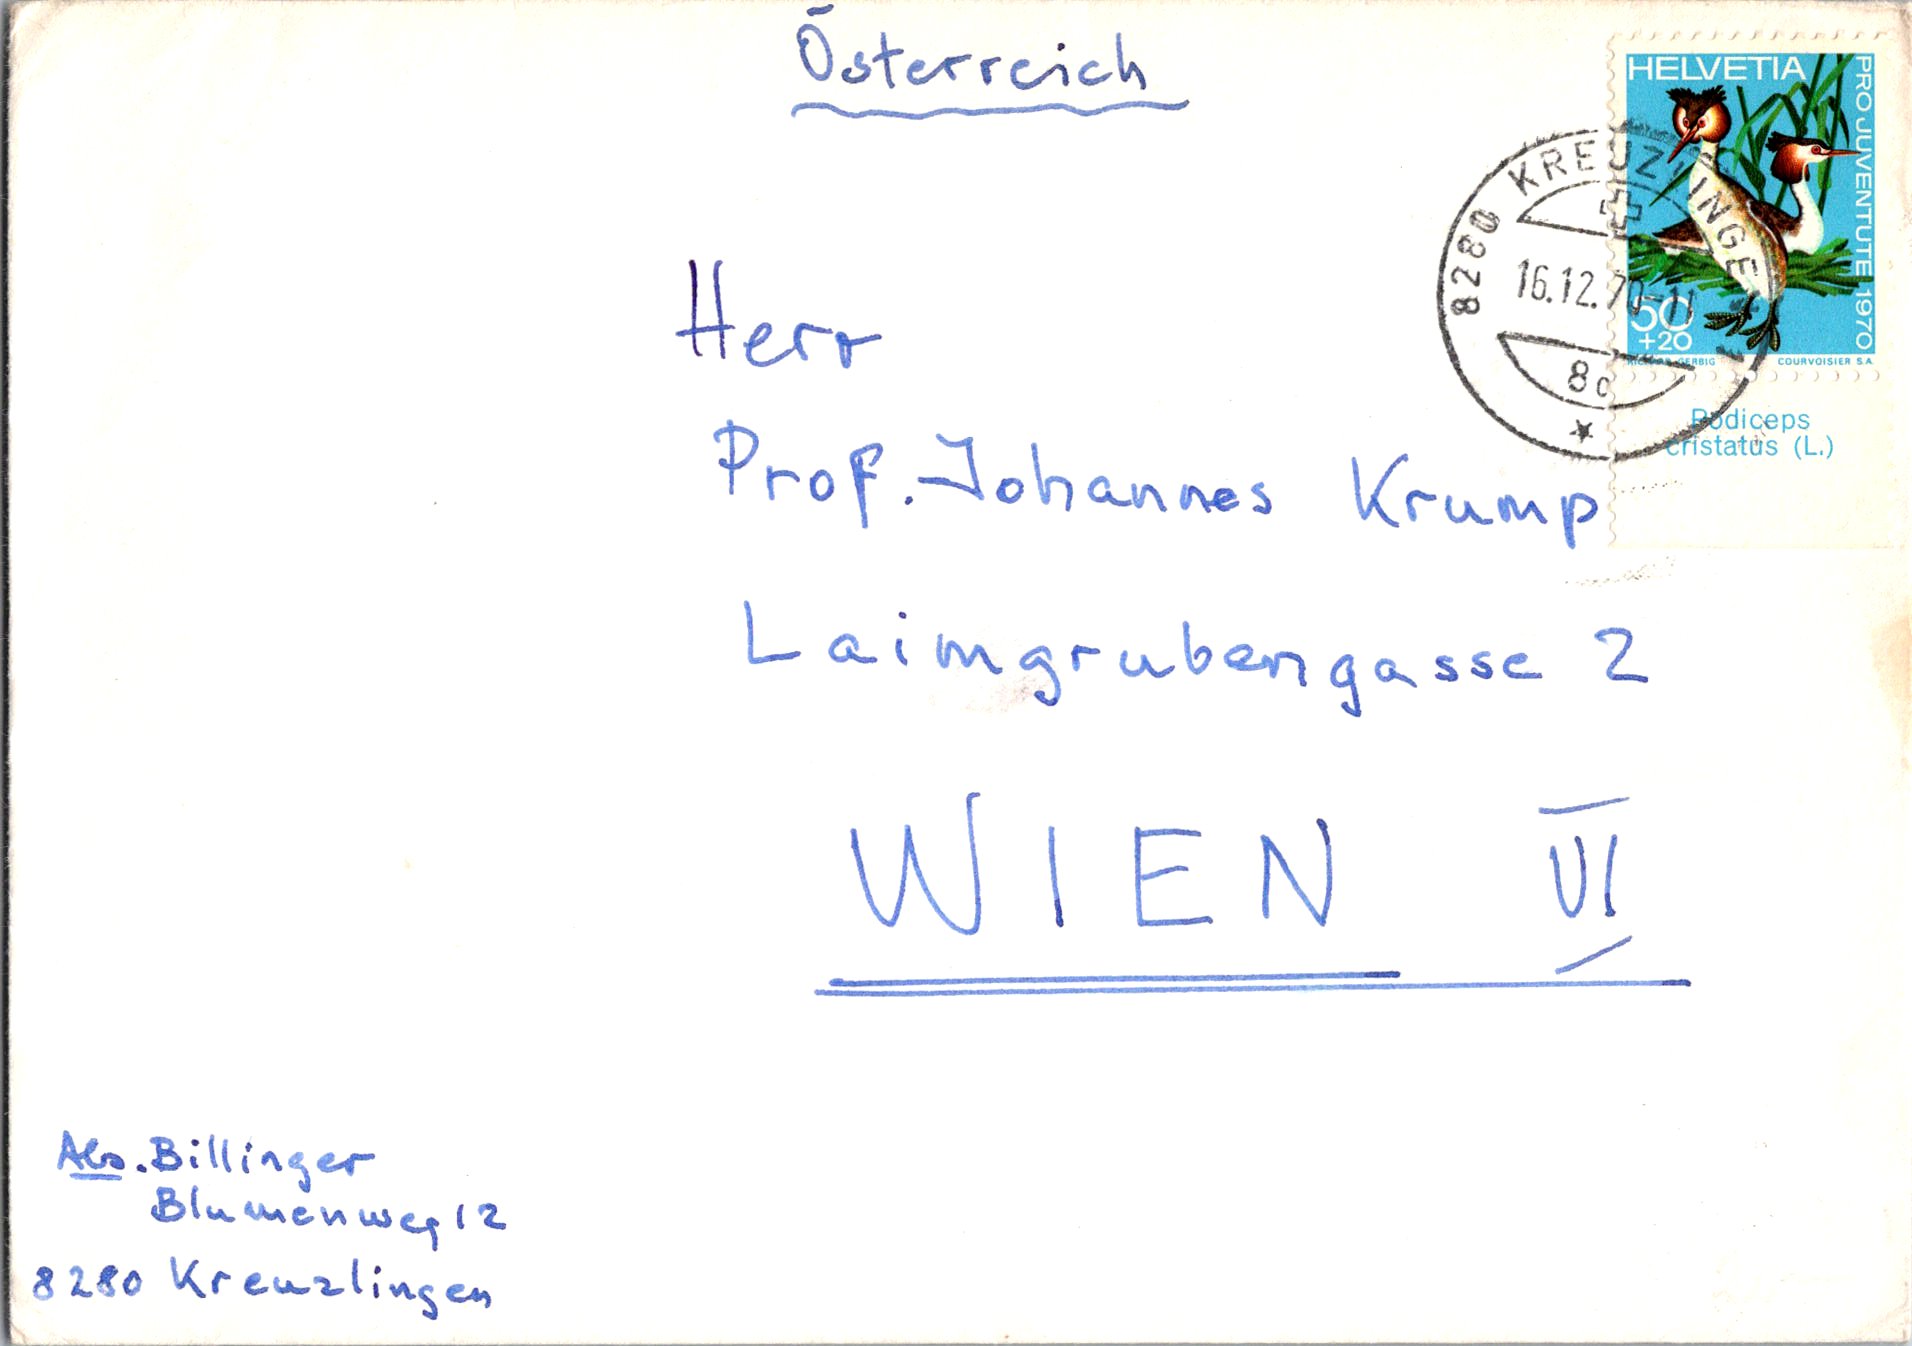 Österreich
HELVETIA
PRO JUVENTUTE 1970
50
+20
COURVOISIER S.A.
Podiceps
cristatus (L.)
8280 KREUZLINGEN 1
16.12.70-11
Herr
Prof. Johannes Krump
Laimgrubengasse 2
WIEN VI
Abs. Billinger
Blumenweg 12
8280 Kreuzlingen